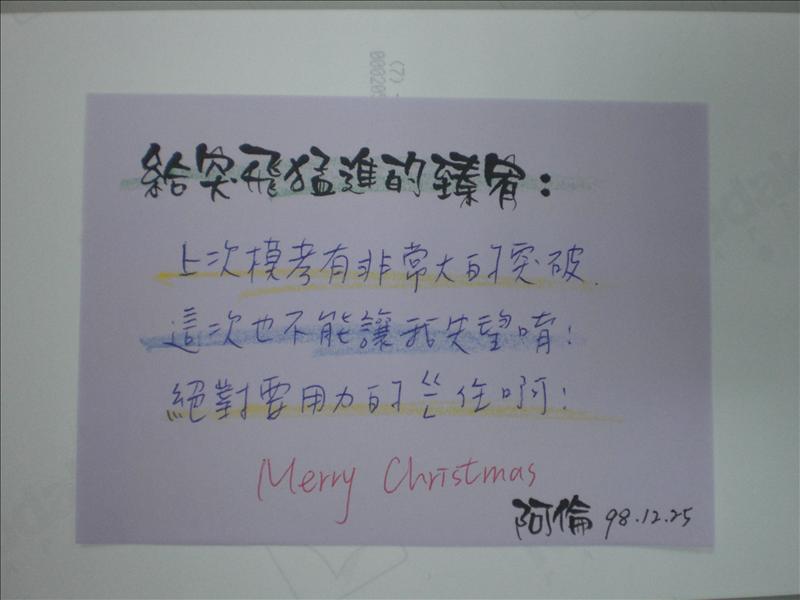 (7)
給突飛猛進的臻宥:
上次模考有非常大的突破.
這次也不能讓我失望唷!
絕對要用力的ㄍㄧㄥ住啊!
Merry Christmas
阿倫 98.12.25